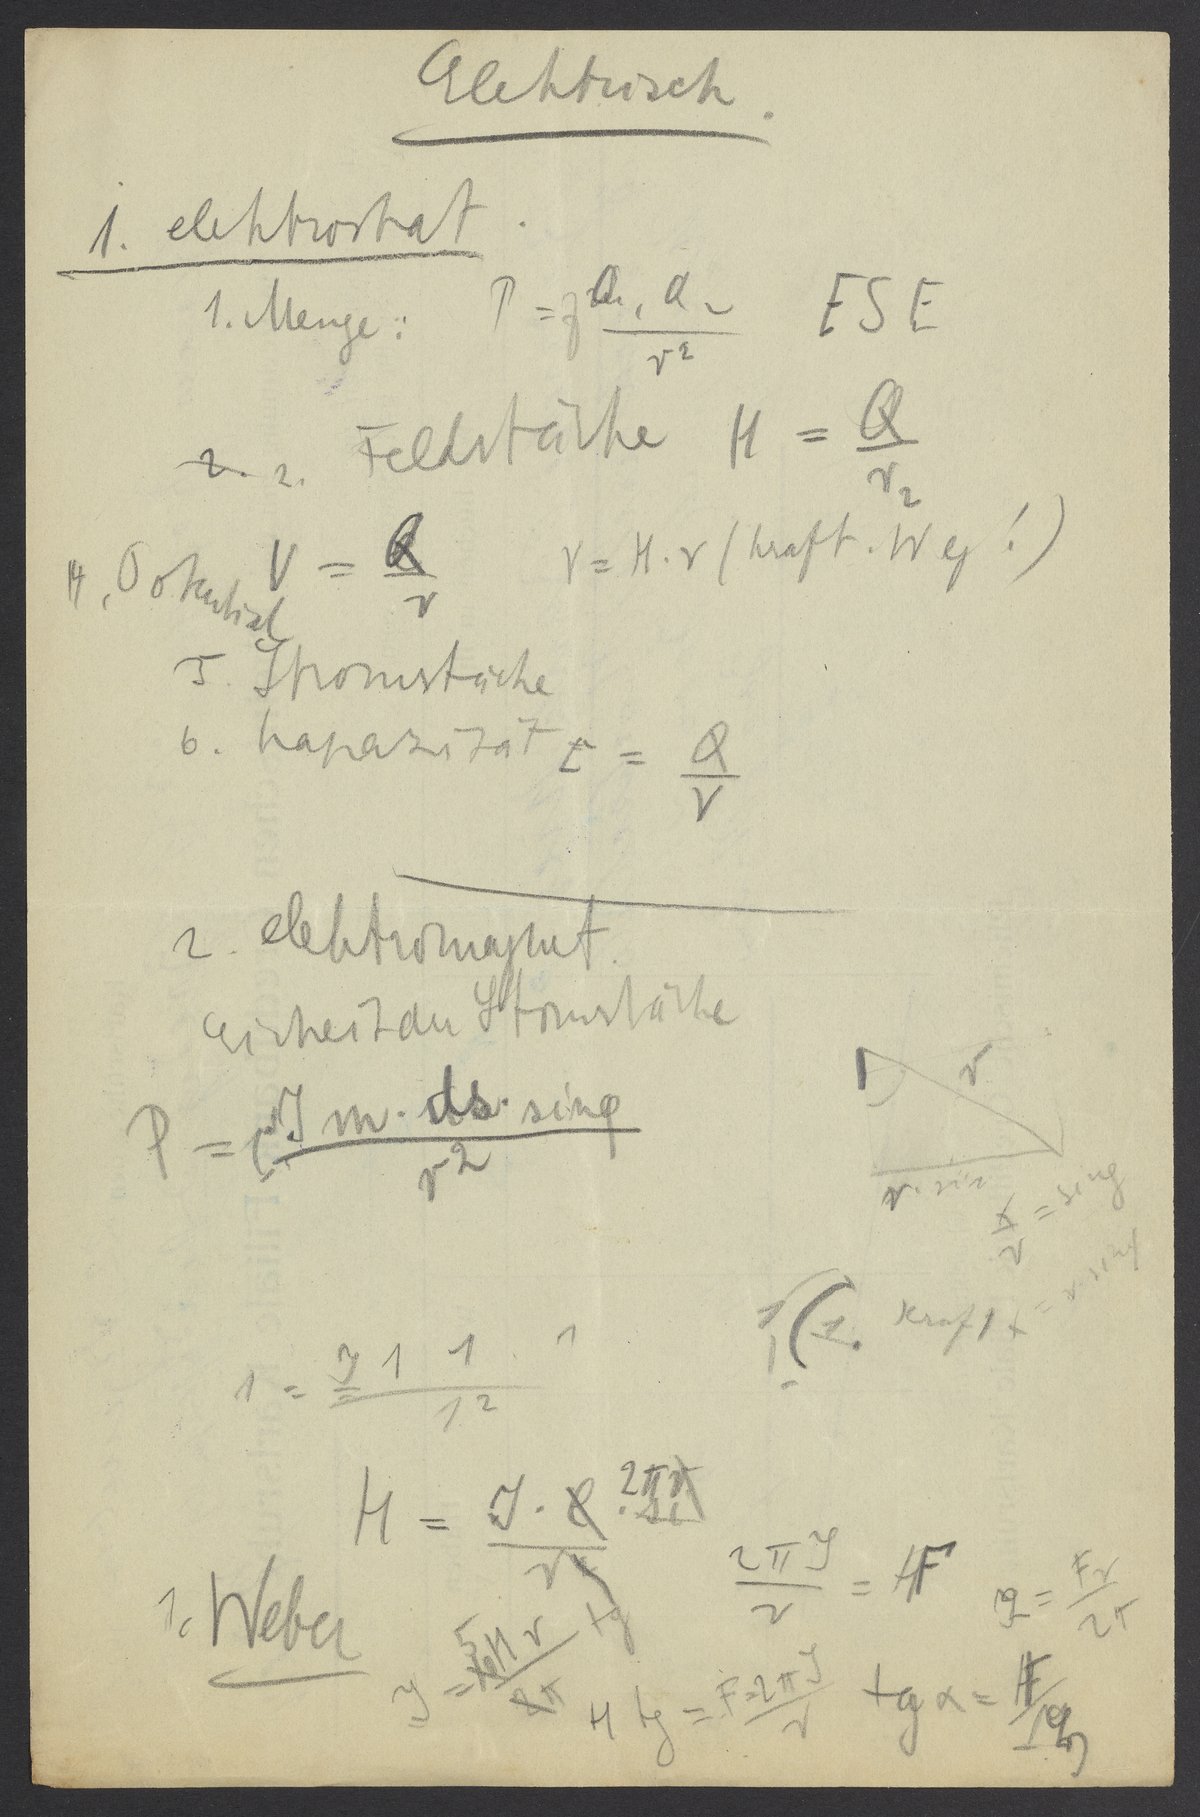 Elektrisch.
1. elektrostat.
1. Menge: P = f Q₁ Q₂ / r² ESE
2. 2. Feldstärke H = Q / r2
4. Potential V = Q / r V = H · r (Kraft · Weg!)
5. Stromstärke
6. Kapazität C = Q / V
2. elektromagnet.
Einheit der Stromstärke
P = J m · ds · sin φ / r²
r
r · sin
x / r = sin φ
Kraft x = r sin φ
1 = J 1 1 1 / 1²
H = J · 2πr
2πJ / r = F
1. Weber
H tg = F = 2πJ / r
tg α =